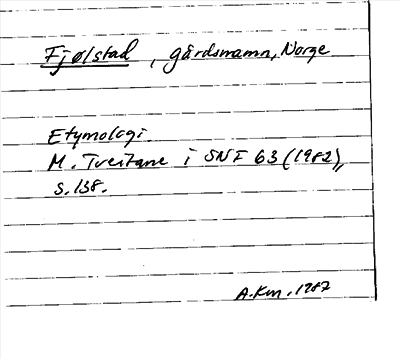 Fjølstad, gårdsnamn, Norge
Etymologi.
M. Tveitane i SNF 63 (1982),
s. 138.
A.Km. 1987